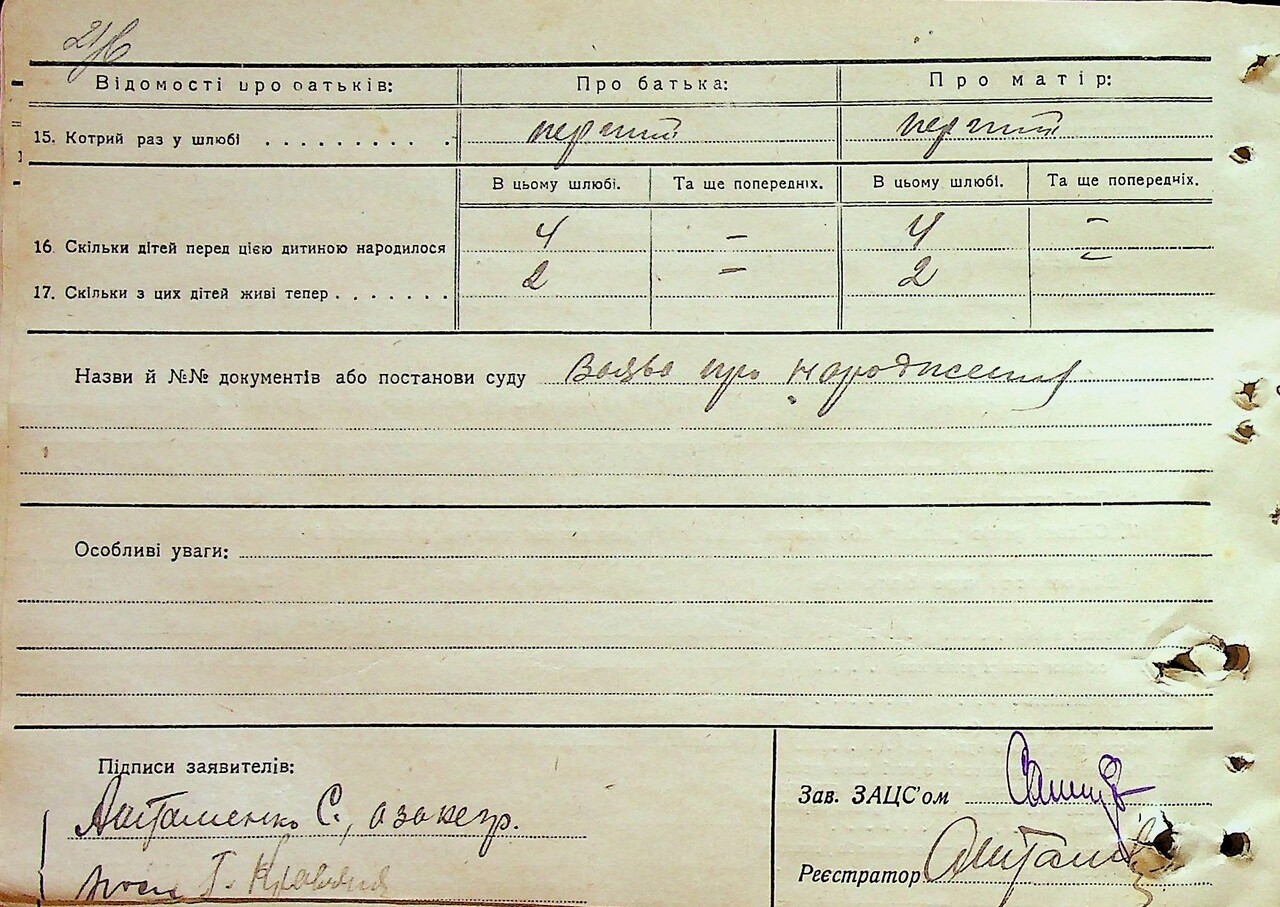 Відомості про батьків: Про батька: Про матір:
15. Котрий раз у шлюбі . . . . . . . . . . перший перший
В цьому шлюбі. Та ще попередніх. В цьому шлюбі. Та ще попередніх.
16 Скільки дітей перед цією дитиною народилося 4 – 4 –
17. Скільки з цих дітей живі тепер . . . . . . . 2 – 2 –
Назви й №№ документів або постанови суду Заява про народження
Особливі уваги:
Підписи заявителів:
Зав. ЗАЦС'ом
С.,
Реєстратор
Г.